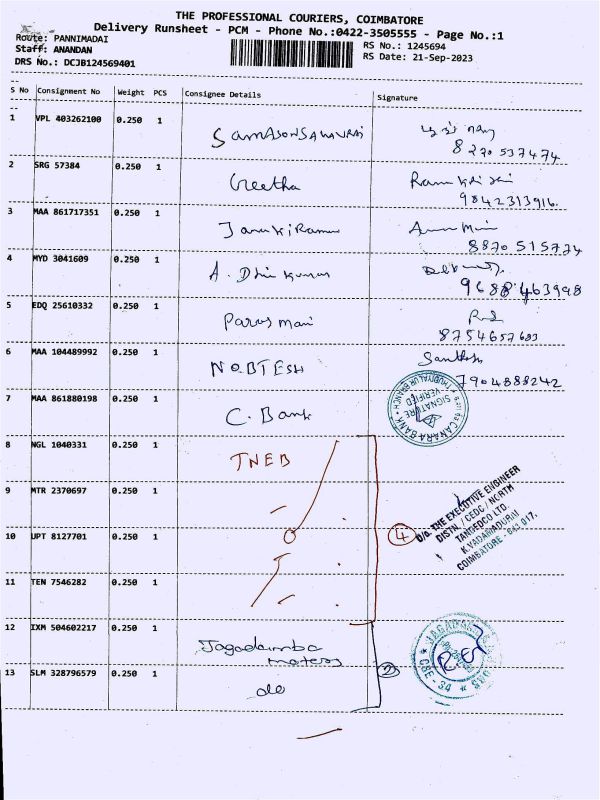 THE PROFESSIONAL COURIERS, COIMBATORE
Delivery Runsheet - PCM - Phone No.:0422-3505555 - Page No.:1
Route: PANNIMADAI
Staff: ANANDAN
DRS No.: DCJB124569401
RS No.: 1245694
RS Date: 21-Sep-2023
S No Consignment No Weight PCS Consignee Details Signature
1 VPL 403262100 0.250 1
8270537474
2 SRG 57384 0.250 1 Geetha
9842313916
3 MAA 861717351 0.250 1
8870515774
4 MYD 3041609 0.250 1 A.
9688463998
5 EDQ 25610332 0.250 1 Paras Mani
8754657683
6 MAA 104489992 0.250 1 Santhosh
7904888242
7 MAA 861880198 0.250 1 C. Bank
SIGNATURE VERIFIED
CANARA BANK
8 NGL 1040331 0.250 1 TNEB
9 MTR 2370697 0.250 1
10 UPT 8127701 0.250 1 4
O/o. THE EXECUTIVE ENGINEER
DISTN. / CEDC / NORTH
TANGEDCO LTD.
COIMBATORE - 641 017.
11 TEN 7546282 0.250 1
12 IXM 504602217 0.250 1 Jagadamba
CBE-34
2
13 SLM 328796579 0.250 1 do